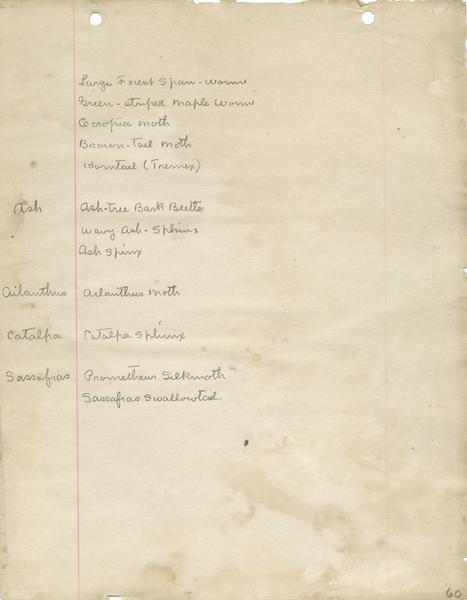 Large Forest Span-worm
Green-striped Maple Worm
Cecropia Moth
Brown-tail Moth
Horntail (Tremex)
Ash Ash-tree Bark Beetle
Wavy Ash-Sphinx
Ash Spinx
Ailanthus Ailanthus Moth
Catalpa Catalpa Sphinx
Sassafras Prometheus Silkmoth
Sassafras Swallowtail.
60